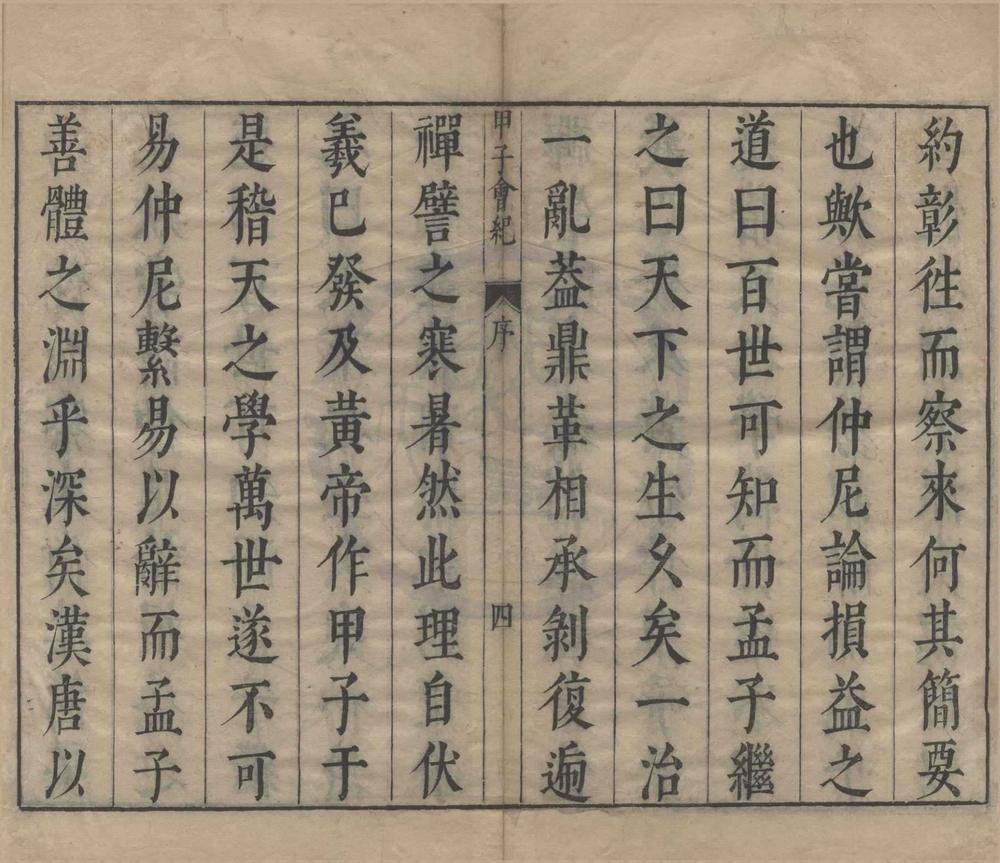 約彰徃而察來何其簡要
也歟嘗謂仲尼論損益之
道曰百世可知而孟子繼
之曰天下之生久矣一治
一亂葢鼎革相承剝復遍
甲子會紀 序 四
禪譬之寒暑然此理自伏
羲巳發及黃帝作甲子于
是稽天之學萬世遂不可
易仲尼繫易以辭而孟子
善體之淵乎深矣漢唐以